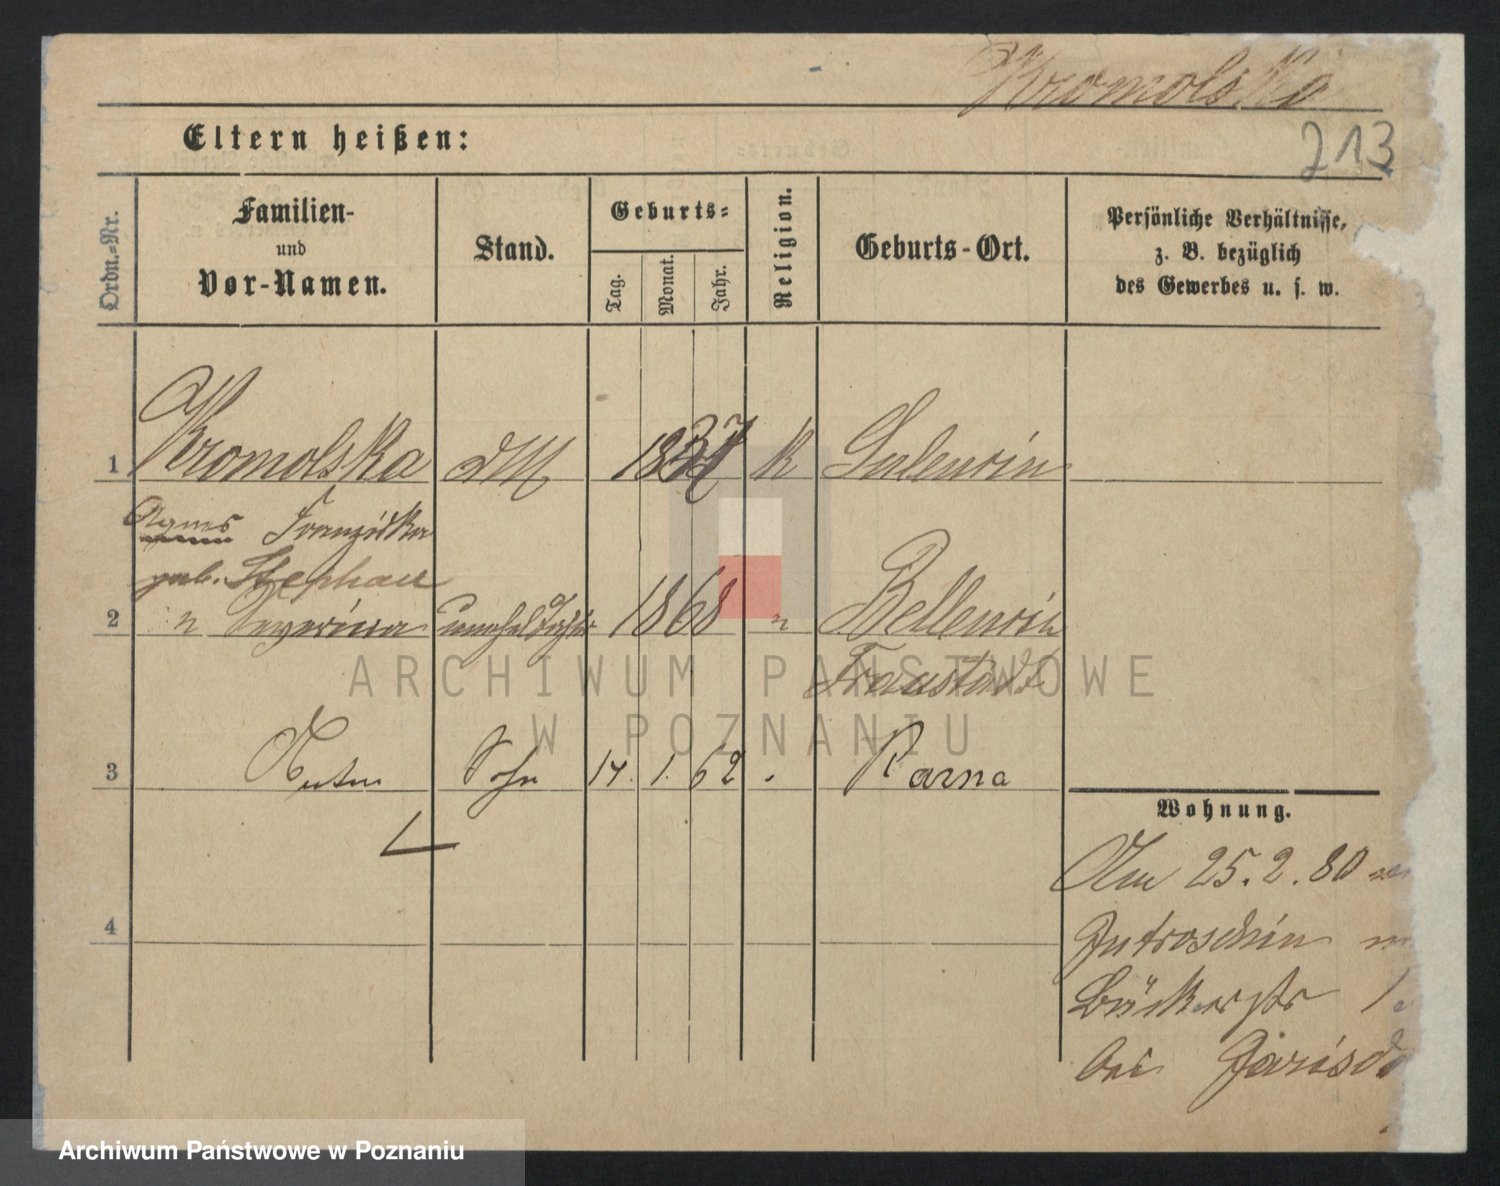 Kromolska
213
Eltern heißen:
Ordn.-Nr.
Familien-
und
Vor-Namen.
Stand.
Geburts-
Tag.
Monat.
Jahr.
Religion.
Geburts-Ort.
Persönliche Verhältnisse,
z. B. bezüglich
des Gewerbes u. s. w.
1 Kromolska 1837 K
Agnes Franziska
geb. Stephan
2 " Severina unehel Tochter 1868 " Bellencin
Fraustadt
3 Anton Sohn 14. 1. 62 Rarna
Wohnung.
Am 25. 2. 80
Jutroschin
Bäckerstr 1
bei
4
ARCHIWUM PAŃSTWOWE
W POZNANIU
Archiwum Państwowe w Poznaniu